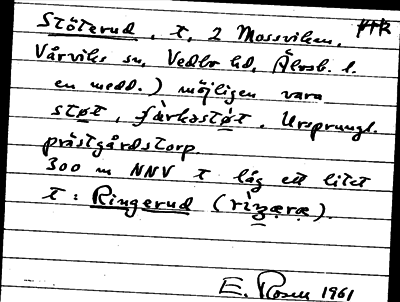 Stöterud, t, 2 Mossviken,
Vårviks sn, Vedbo hd, Älvsb. l.
en medd.) möjligen vara
støt, fàrkastøt. Ursprungl.
prästgårdstorp.
300 m NNV t låg ett litet
t: Ringerud (rìŋæræ).
E. Rosell 1961